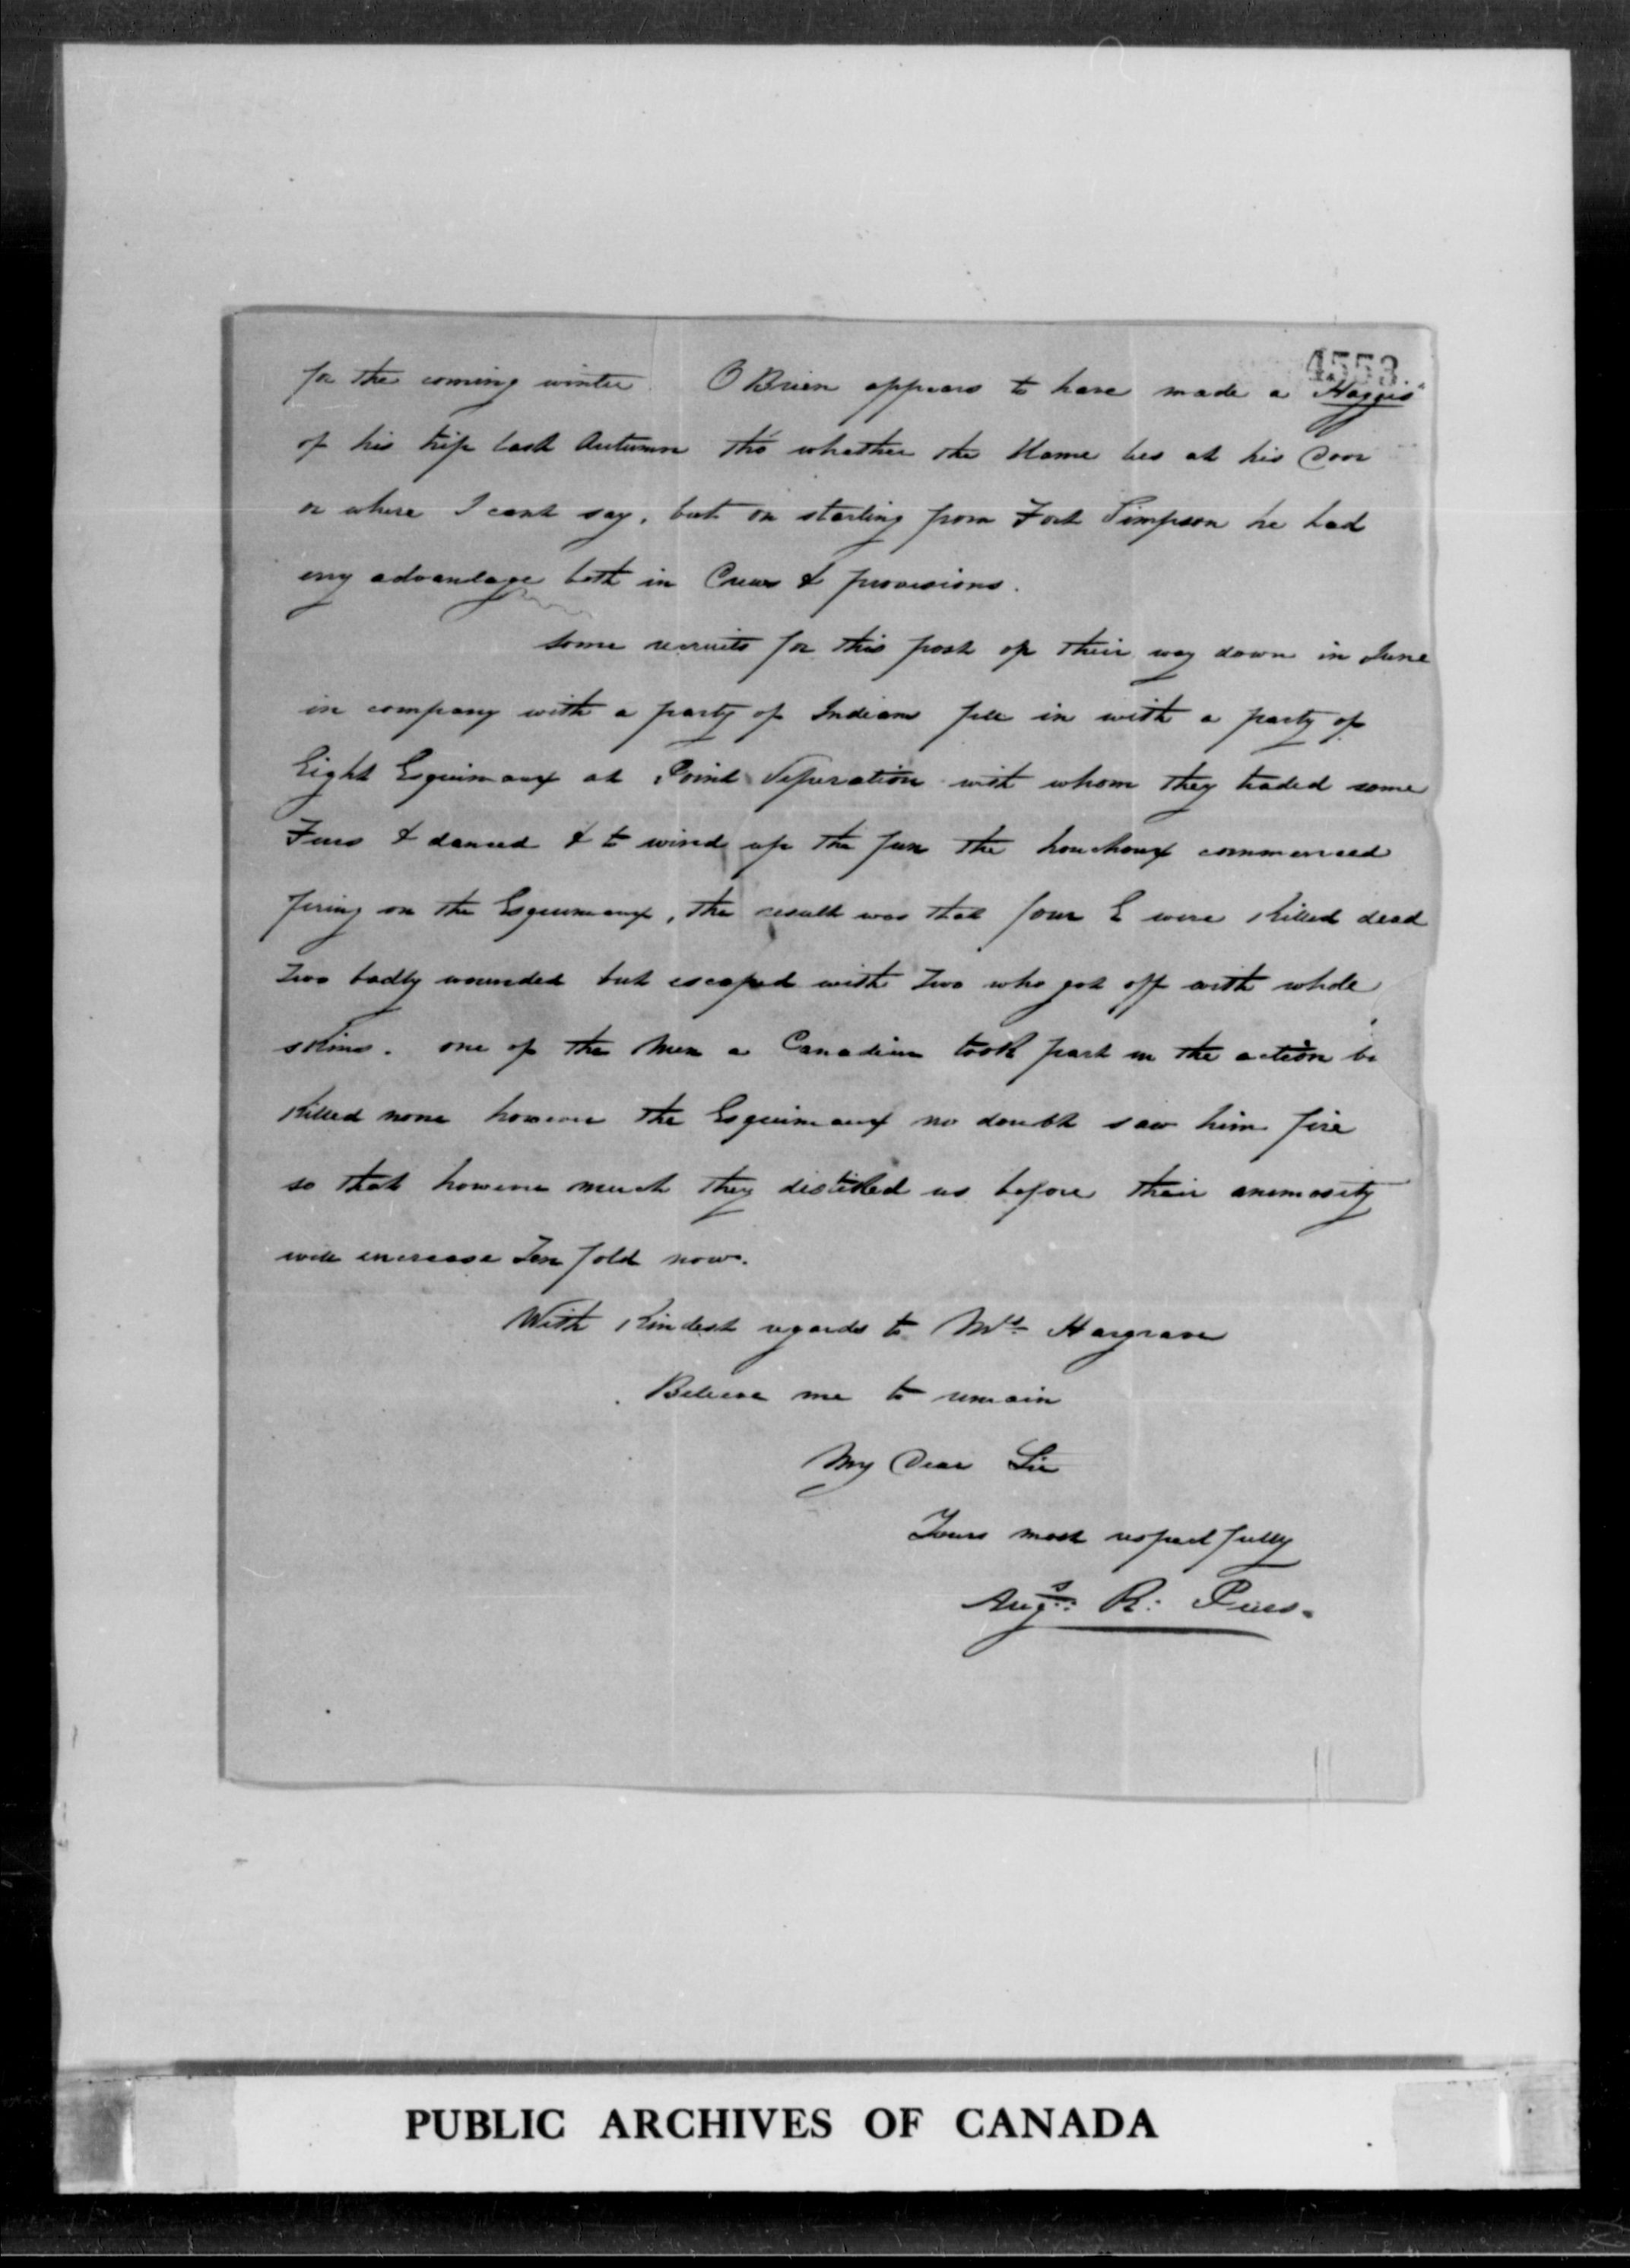 4553.
for the coming winter. OBrien appears to have made a Haggis
of his trip last Autumn tho' whether the blame lies at his Door
or where I cant say, but on starting from Fort Simpson he had
evy advantage both in Crews & provisions.
Some recruits for this post op their way down in June
in company with a party of Indians fell in with a party of
Eight Esquimaux at Point Seperation with whom they traded some
Furs & danced & to wind up the fun the louchoux commenced
firing on the Esquimaux, the result was that four E were killed dead
Two badly wounded but escaped with Two who got off with whole
skins. one of the Men a Canadian took part in the action he
killed none however the Esquimaux no doubt saw him fire
so that however much they disliked us before their animosity
will increase Ten fold now.
With kindest regards to Mrs. Hargrave
Believe me to remain
My Dear Sir
Yours most respectfully
Augs: R: Peers.
PUBLIC ARCHIVES OF CANADA